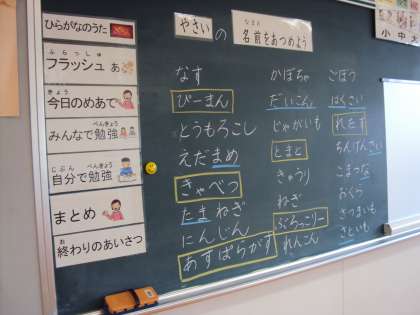 ひらがなのうた
ふらっしゅ
フラッシュ あ
きょう
今日のめあて
べんきょう
みんなで勉強
じぶん べんきょう
自分で勉強
まとめ
お
終わりのあいさつ
やさいの
なまえ
名前をあつめよう
なす
ぴーまん
とうもろこし
えだまめ
きゃべつ
たまねぎ
にんじん
あすぱらがす
かぼちゃ
だいこん
じゃがいも
とまと
きゅうり
ねぎ
ぶろっこりー
れんこん
ごぼう
はくさい
れたす
ちんげんさい
こまつな
おくら
さつまいも
さといも
小中大